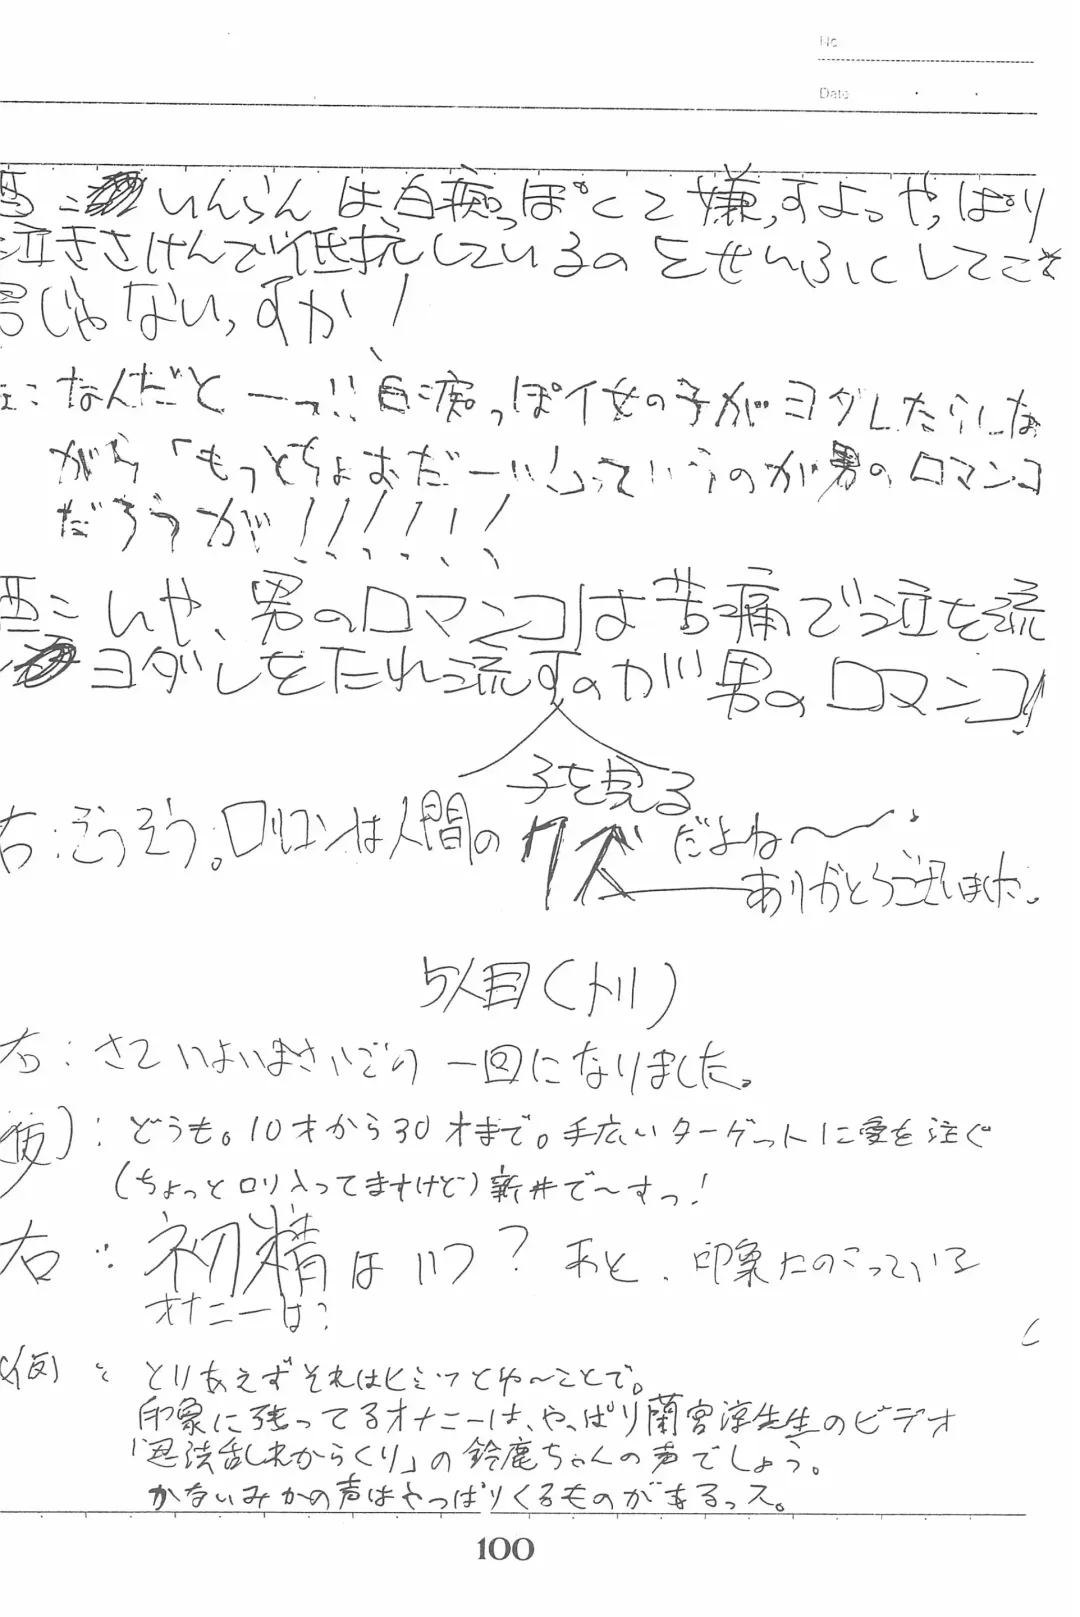 No.
Date ・ ・
酉：いんらんは、白痴っぽくて嫌っすよっ。やっぱり
泣きさけんで低抗しているのをせいふくしてこそ
男じゃないっすか！
右：なんだとーっ!!白痴っぽイ女の子がヨダレたらしな
がら「もっとちょおだーい」っていうのが男のロマンコ
だろうが！！！！！！
酉：いや、男のロマンコは苦痛で泣を流
ヨダレをたれ流すのが男のロマンコ！
子を見る
右：そうそう。ロリコンは人間のクズだよね〜
ありがとうございました。
5人目（トリ）
右：さていよいよさいごの一回になりました。
（仮）：どうも。10才から30才まで。手広いターゲットに愛を注ぐ
（ちょっとロリ入ってますけど）新井で〜すっ！
右：初精はいつ？あと、印象にのこっている
オナニーは？
（仮）：とりあえずそれはヒミツとゆ〜ことで。
印象に残ってるオナニーは、やっぱり蘭宮淳先生のビデオ
「忍法乱れからくり」の鈴鹿ちゃんの声でしょう。
かないみかの声はやっぱりくるものがあるっス。
100